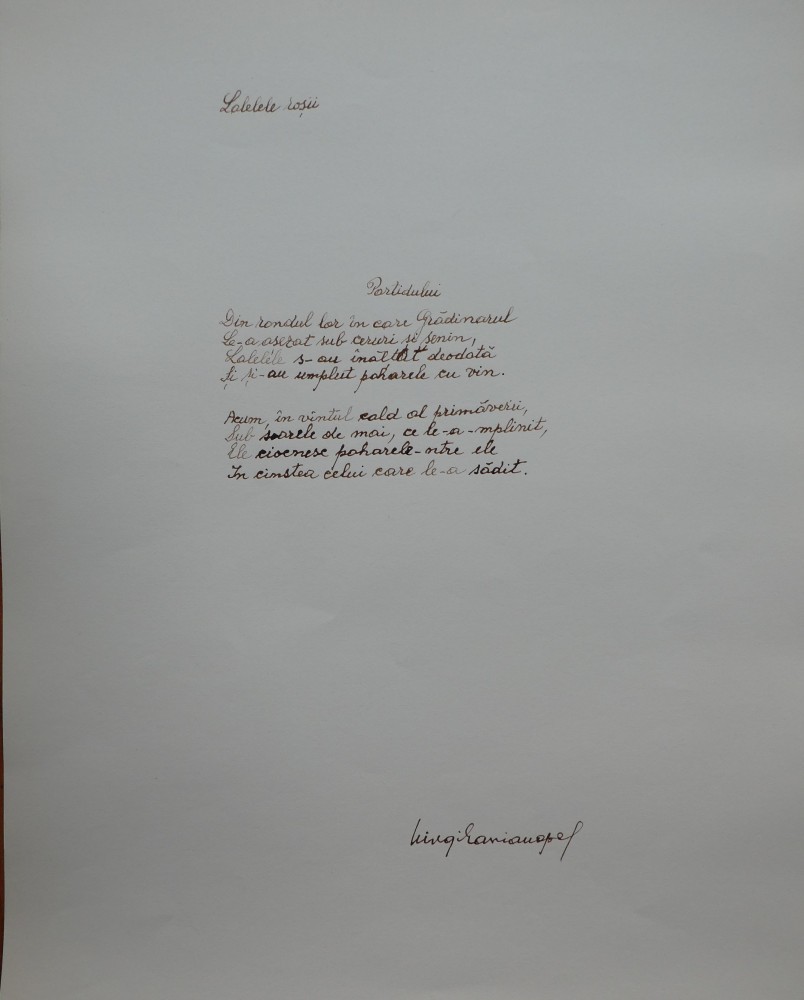 Lalelele roșii
Partidului
Din rondul lor în care Grădinarul
Le-a așezat sub ceruri și senin,
Lalelele s-au înălțat deodată
Și și-au umplut paharele cu vin.
Acum, în vîntul cald al primăverii,
Sub soarele de mai, ce le-a-mplinit,
Ele ciocnesc paharele-ntre ele
În cinstea celui care le-a sădit.